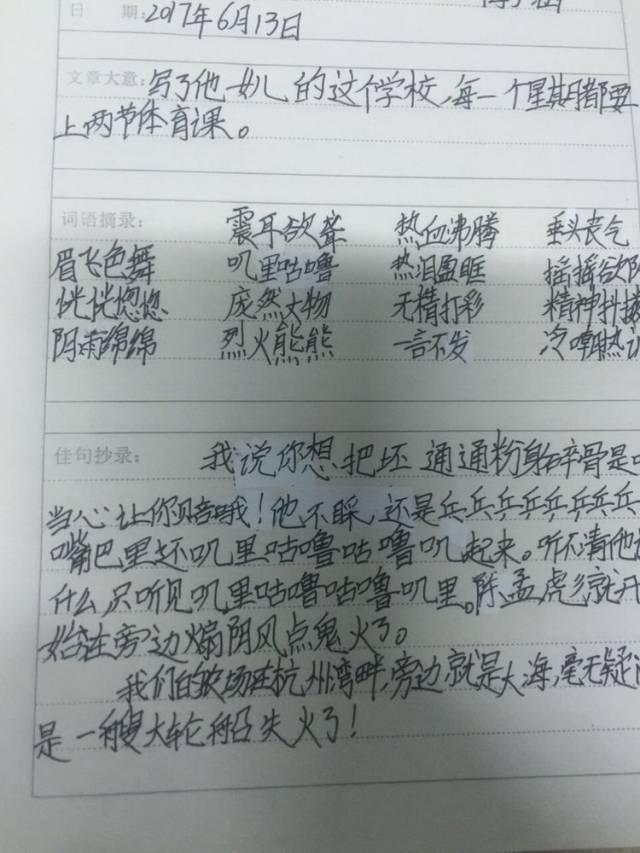 日 期：2017年6月13日
文章大意：写了他女儿的这个学校，每一个星期都要
上两节体育课。
词语摘录：
震耳欲聋 热血沸腾 垂头丧气
眉飞色舞 叽里咕噜 热泪盈眶 摇摇欲
恍恍惚惚 庞然大物 无精打彩 精神抖擞
阴雨绵绵 烈火熊熊 一言不发 冷嘲热
佳句抄录：
我说你想把坯通通粉身碎骨是
当心让你赔哦！他不睬，还是乒乒乒乒乒乒乒
嘴巴里还叽里咕噜咕噜叽起来。听不清他
什么，只听见叽里咕噜咕噜叽里。陈孟虎就开
始在旁边煽阴风点鬼火了。
我们的牧场在杭州湾畔，旁边就是大海，毫无疑
是一艘大轮船失火了！